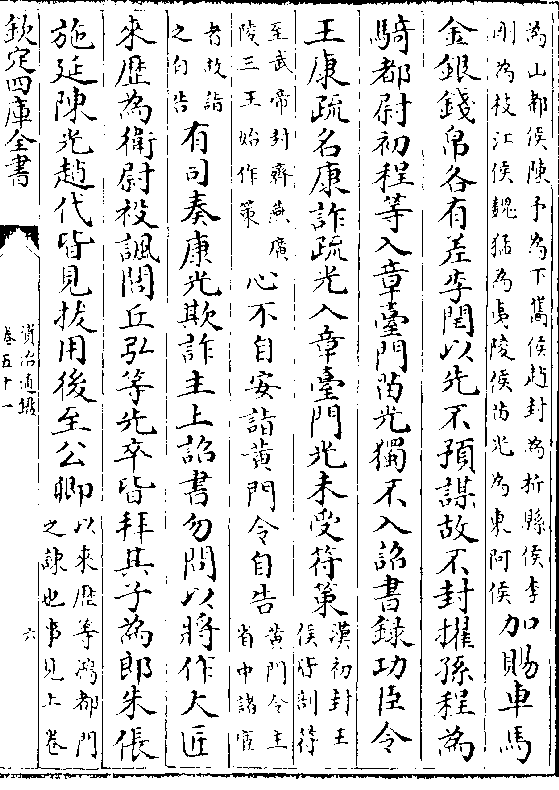 為山都侯陳予為下雋侯趙封為析縣侯李
剛為枝江侯魏猛為夷陵侯苗光為東阿侯
加賜車馬
金銀錢帛各有差李閏以先不預謀故不封擢孫程為
騎都尉初程等入章臺門苗光獨不入詔書録功臣令
王康疏名康詐疏光入章臺門光未受符策
漢初封王
侯符剖符
至武帝封齊燕廣
陵三王始作策
心不自安詣黄門令自告
黄門令主
省中諸宦
者故詣
之自告
有司奏康光欺詐主上詔書勿問以將作大匠
來歴為衛尉祋諷閭丘弘等先卒皆拜其子為郎朱倀
施延陳光趙代皆見拔用後至公卿
以來歴等鴻都門
之諫也事見上卷
欽定四庫全書
資治通鑑
卷五十一
六